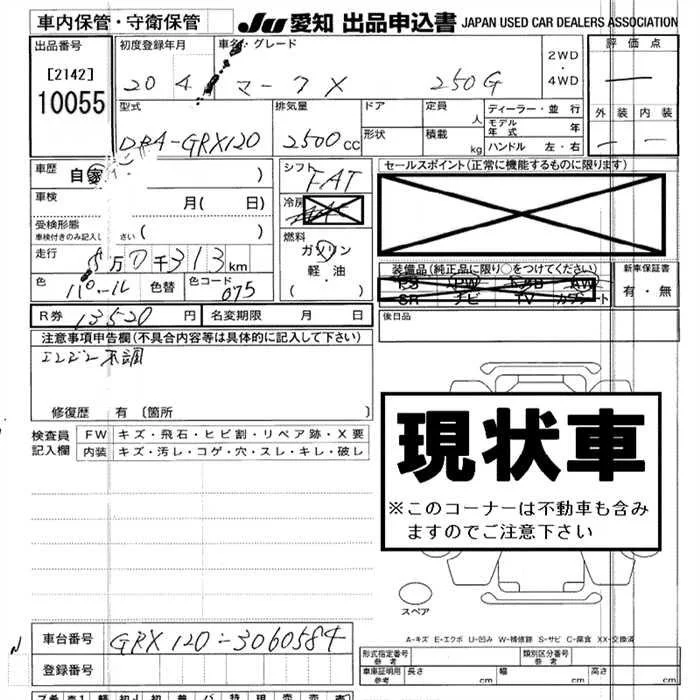 車内保管・守衛保管 JU 愛知 出品申込書 JAPAN USED CAR DEALERS ASSOCIATION
出品番号 初度登録年月 車名・グレード 2WD・4WD 評価点
[2142] 20 4 マークX 250G
10055 外装 内装
型式 排気量 ドア 定員 人 ディーラー・並 行
DBA-GRX120 2500cc 形状 積載 kg モデル年式 年
ハンドル 左・右
車歴 自家 ) シフト FAT セールスポイント(正常に機能するものに限ります)
車検 月( 日) 冷房
受検形態 車検付きのみ記入し さい ( ) 燃料
走行 8万0千313km ガソリン
軽・油
( )
装備品(純正品に限り○をつけてください) 新車保証書
PS PW AW
SR ナビ TV カワシート 有・無
色 パール 色替 色コード 075
後日品
R券 13520円 名変期限 月 日
注意事項申告欄(不具合内容等は具体的に記入して下さい)
エンジン不調
修復歴 有〔箇所 〕
検査員記入欄 FW キズ・飛石・ヒビ割・リペア跡・X要
内装 キズ・汚レ・コゲ・穴・スレ・キレ・破レ
現状車
※このコーナーは不動車も含み
ますのでご注意下さい
スペア
A-キズ E-エクボ U-凹み W-補修跡 S-サビ C-腐食 XX-交換済
車台番号 GRX120-3060584
登録番号
形式指定番号 参考 類別区分番号 参考
車庫証明用 参考 長さ cm 幅 cm 高さ cm